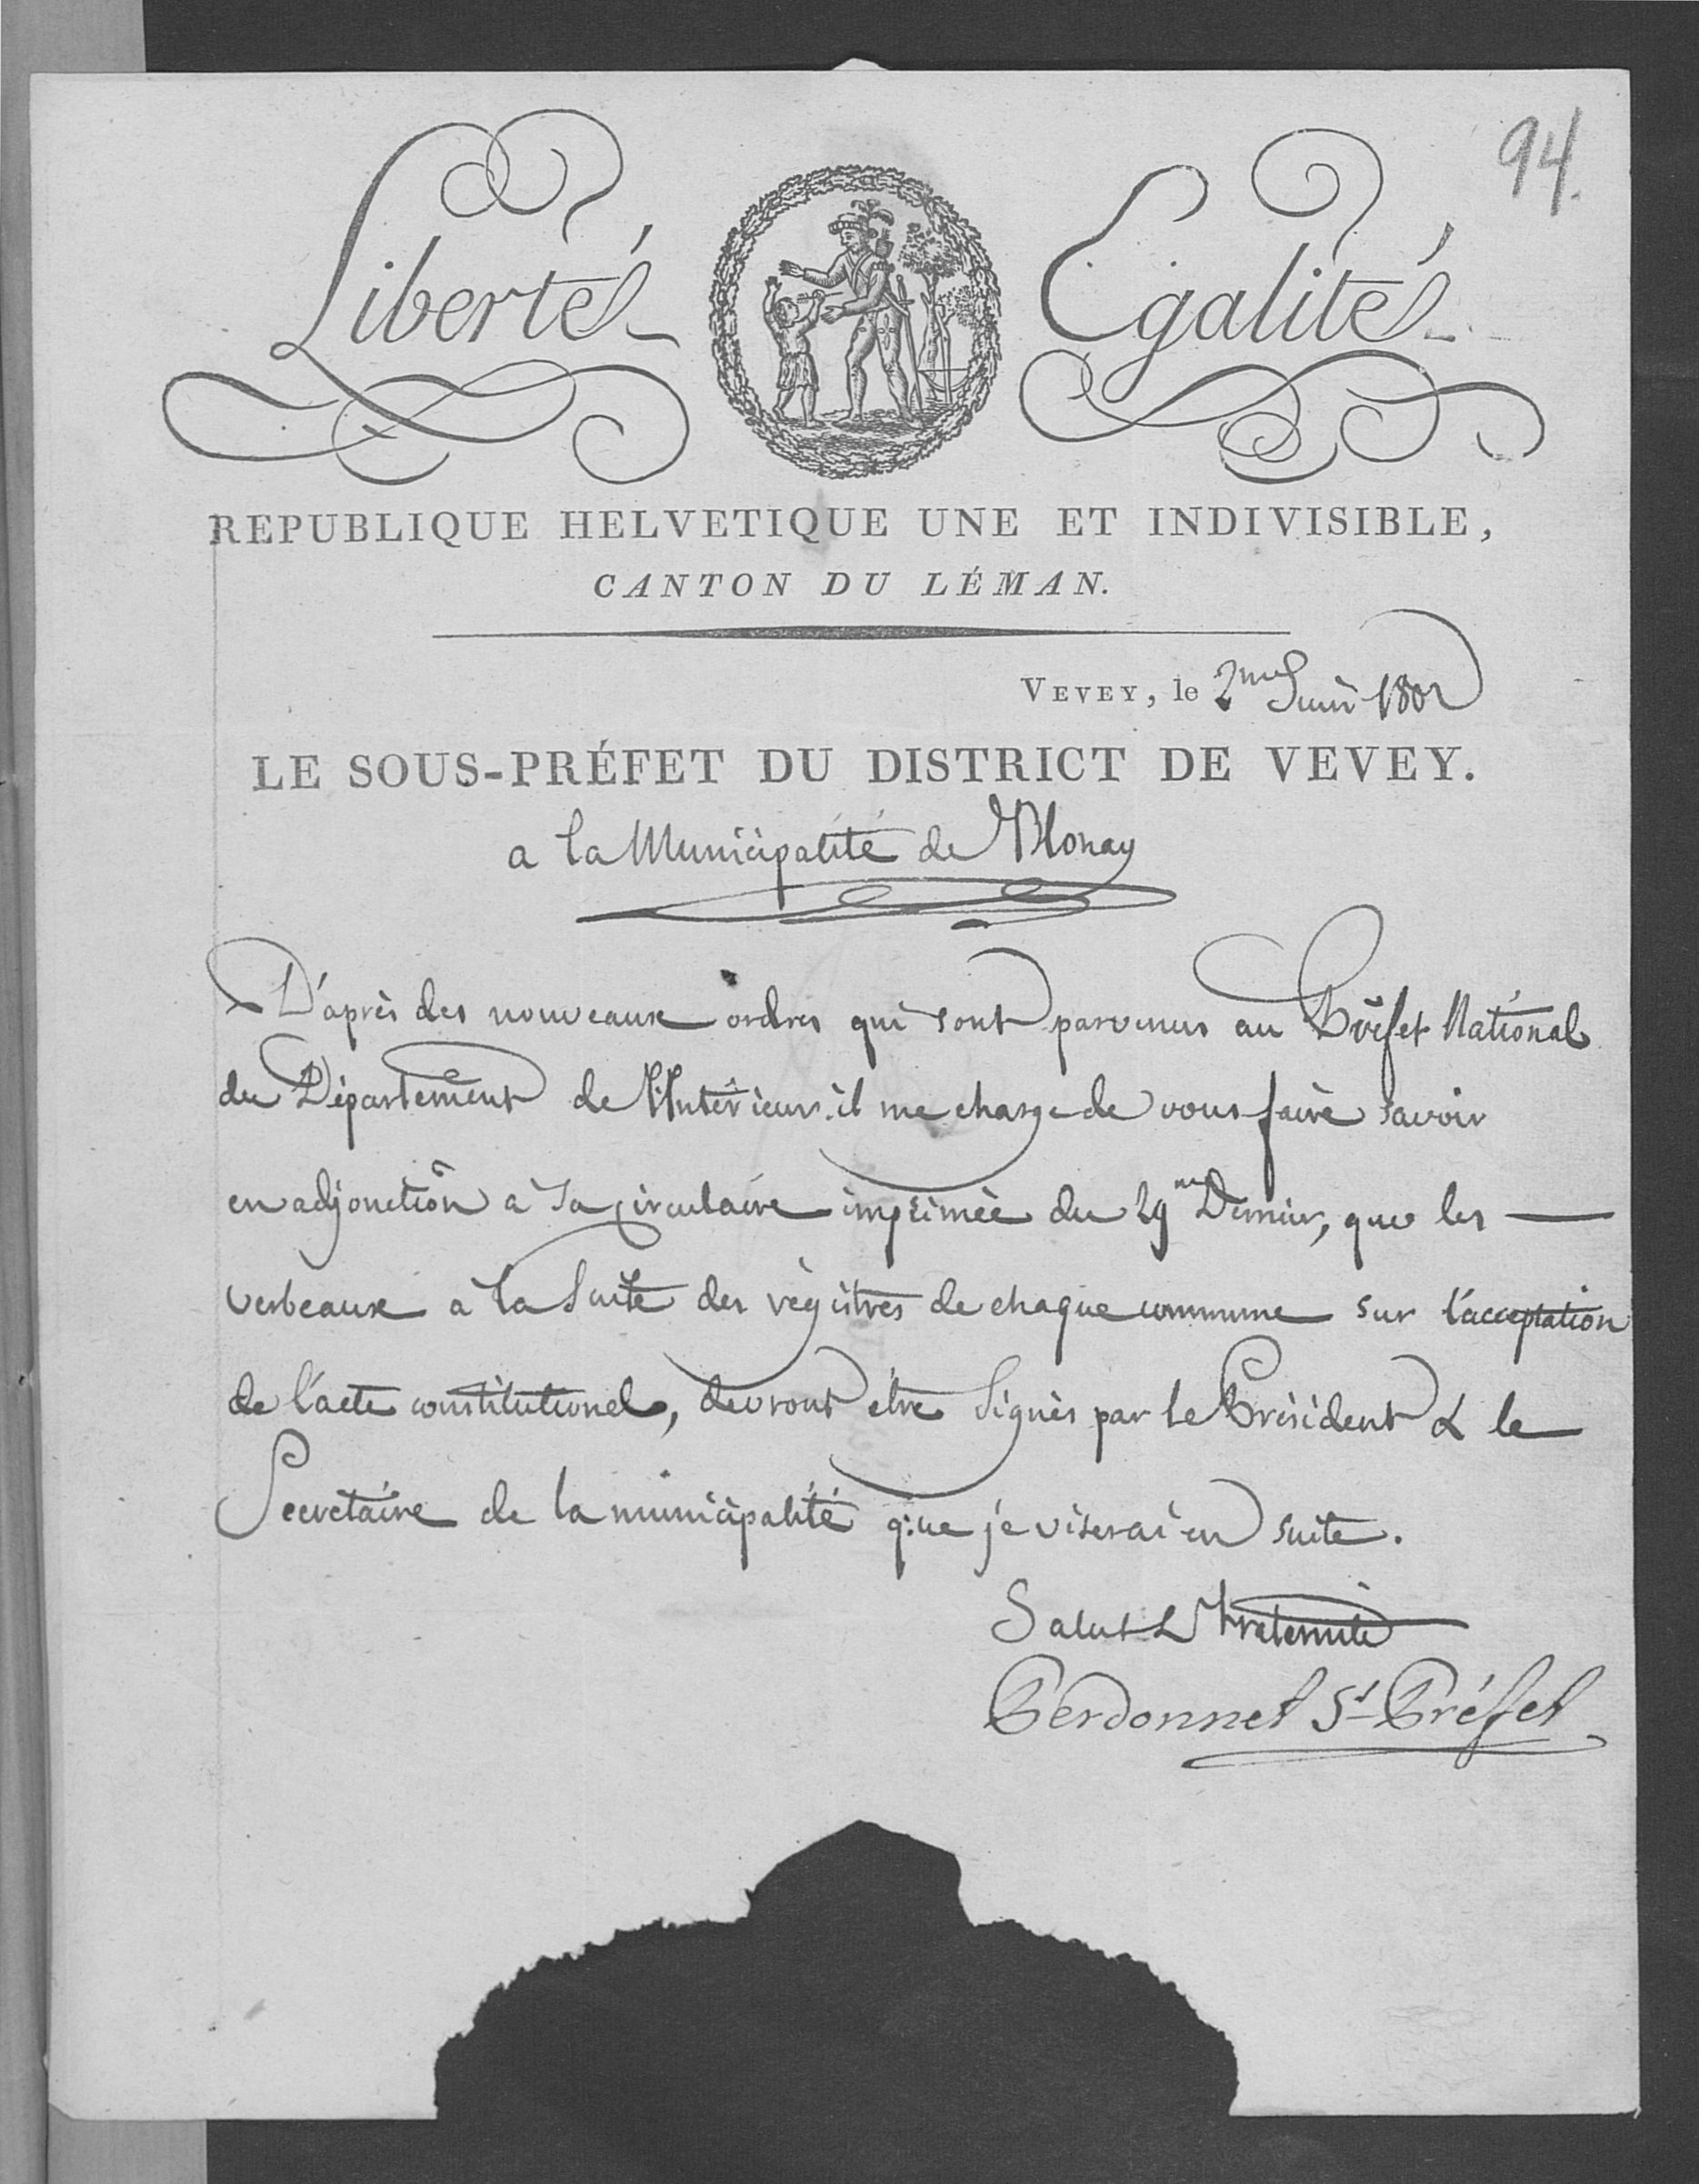 94.
Liberté Egalité
REPUBLIQUE HELVETIQUE UNE ET INDIVISIBLE,
CANTON DU LÉMAN.
VEVEY, le 2me Juin 1802
LE SOUS-PRÉFET DU DISTRICT DE VEVEY.
a la Municipalité de Blonay
D'après des nouveaux ordres qui sont parvenus au Préfet National
du Département de l'Intérieur. il me charge de vous faire savoir
en adjonction a sa circulaire imprimée du 29me Dernier, que les
verbeaux a la suite des régistres de chaque commune sur l'acceptation
de l'acte constitutionel, devront etre signés par le Président & le
Secretaire de la municipalité que je viserai en suite.
Salut & Fraternité
Perdonnet St Préfet